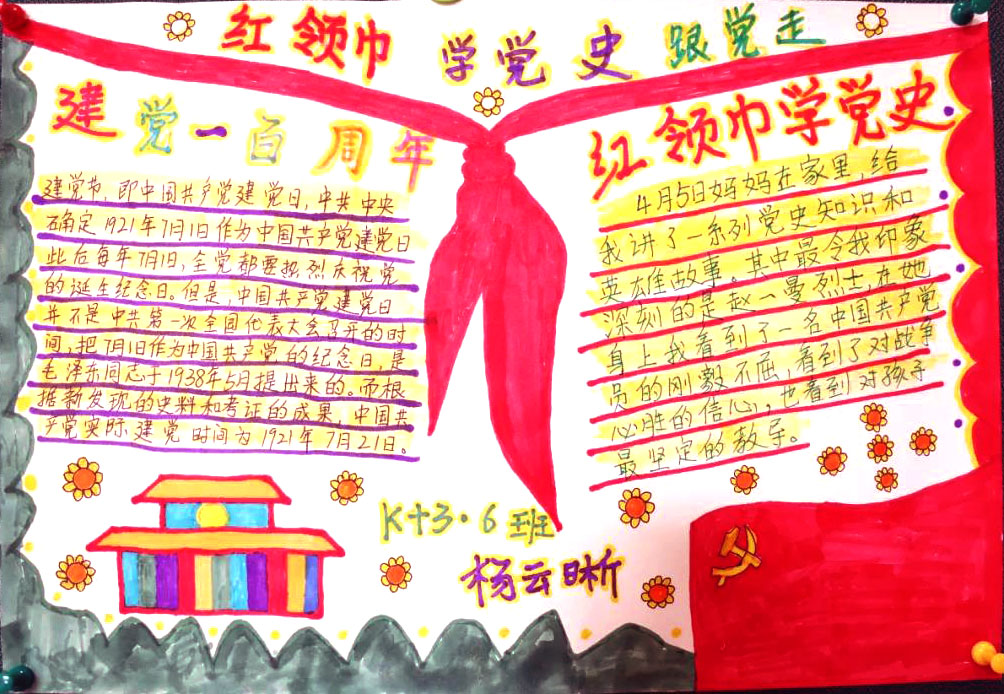 红领巾 学党史 跟党走
建党一百周年
建党节，即中国共产党建党日，中共中央
确定1921年7月1日作为中国共产党建党日
此后每年7月1日，全党都要热烈庆祝党
的诞生纪念日。但是，中国共产党建党日
并不是中共第一次全国代表大会召开的时
间，把7月1日作为中国共产党的纪念日，是
毛泽东同志于1938年5月提出来的。而根
据新发现的史料和考证的成果，中国共
产党实际建党时间为1921年7月21日。
红领巾学党史
4月5日妈妈在家里，给
我讲了一系列党史知识和
英雄故事。其中最令我印象
深刻的是赵一曼烈士，在她
身上我看到了一名中国共产党
员的刚毅不屈，看到了对战争
必胜的信心，也看到对孩子
最坚定的教导。
K十3·6班
杨云晰